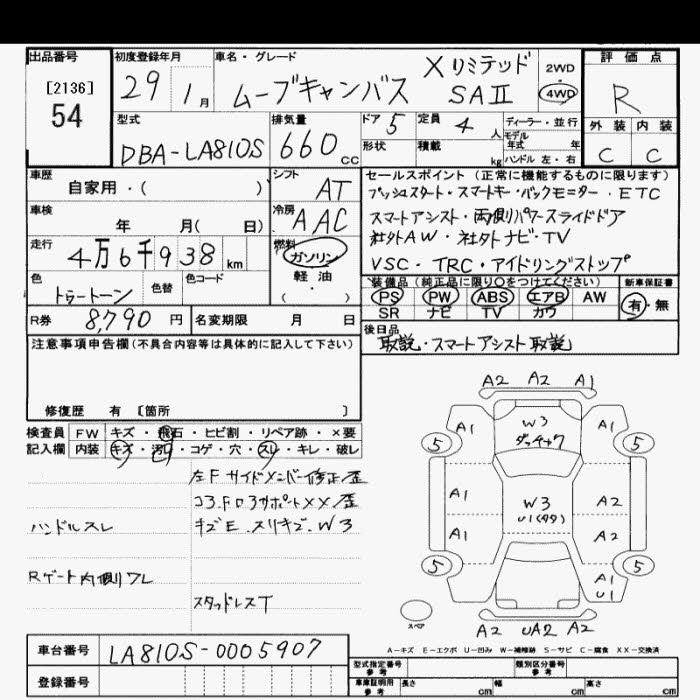 出品番号
[2136]
54
初度登録年月
29 1月
車名・グレード
ムーブキャンバス
Xリミテッド
SAⅡ
2WD
4WD
評価点
R
外装 内装
C C
型式
DBA-LA810S
排気量
660cc
ドア 5
定員 4人
形状
積載 kg
ディーラー・並行
モデル年式 年
ハンドル 左・右
車歴
自家用・( )
シフト AT
車検
年 月( 日)
冷房 AAC
走行
4万6千938km
燃料
ガソリン
軽油
色
色替
色コード
R券 8,790円
名変期限 月 日
セールスポイント(正常に機能するものに限ります)
プッシュスタート・スマートキー・バックモニター・ETC
スマートアシスト・両側パワースライドドア
社外AW・社外ナビ・TV
VSC・TRC・アイドリングストップ
装備品(純正品に限り○をつけてください)
PS PW ABS エアB AW
SR ナビ TV カワ
新車保証書
有・無
後日品
取説・スマートアシスト取説
注意事項申告欄(不具合内容等は具体的に記入して下さい)
修復歴 有 [箇所 ]
検査員記入欄
FW キズ・飛石・ヒビ割・リペア跡・×要
内装 キズ・汚れ・コゲ・穴・スレ・キレ・破レ
左Fサイドメンバー修正/歪
コ3.Fロ3サポートXX/歪
ハンドルスレ
キズE.スリキズ.W3
Rゲート内側ワレ
スタッドレスT
A2 A2 A1
A1 W3 A1
5 5
A1 W3 A2
U1(タタ)
A1 A2
5 5
A1
U1
スペア
A2 UA2 A2
A-キズ E-エクボ U-凹み W-補修跡 S-サビ C-腐食 XX-交換済
車台番号 LA810S-0005907
登録番号
型式指定番号 参考
類別区分番号 参考
車庫証明用 参考 長さ cm 幅 cm 高さ cm